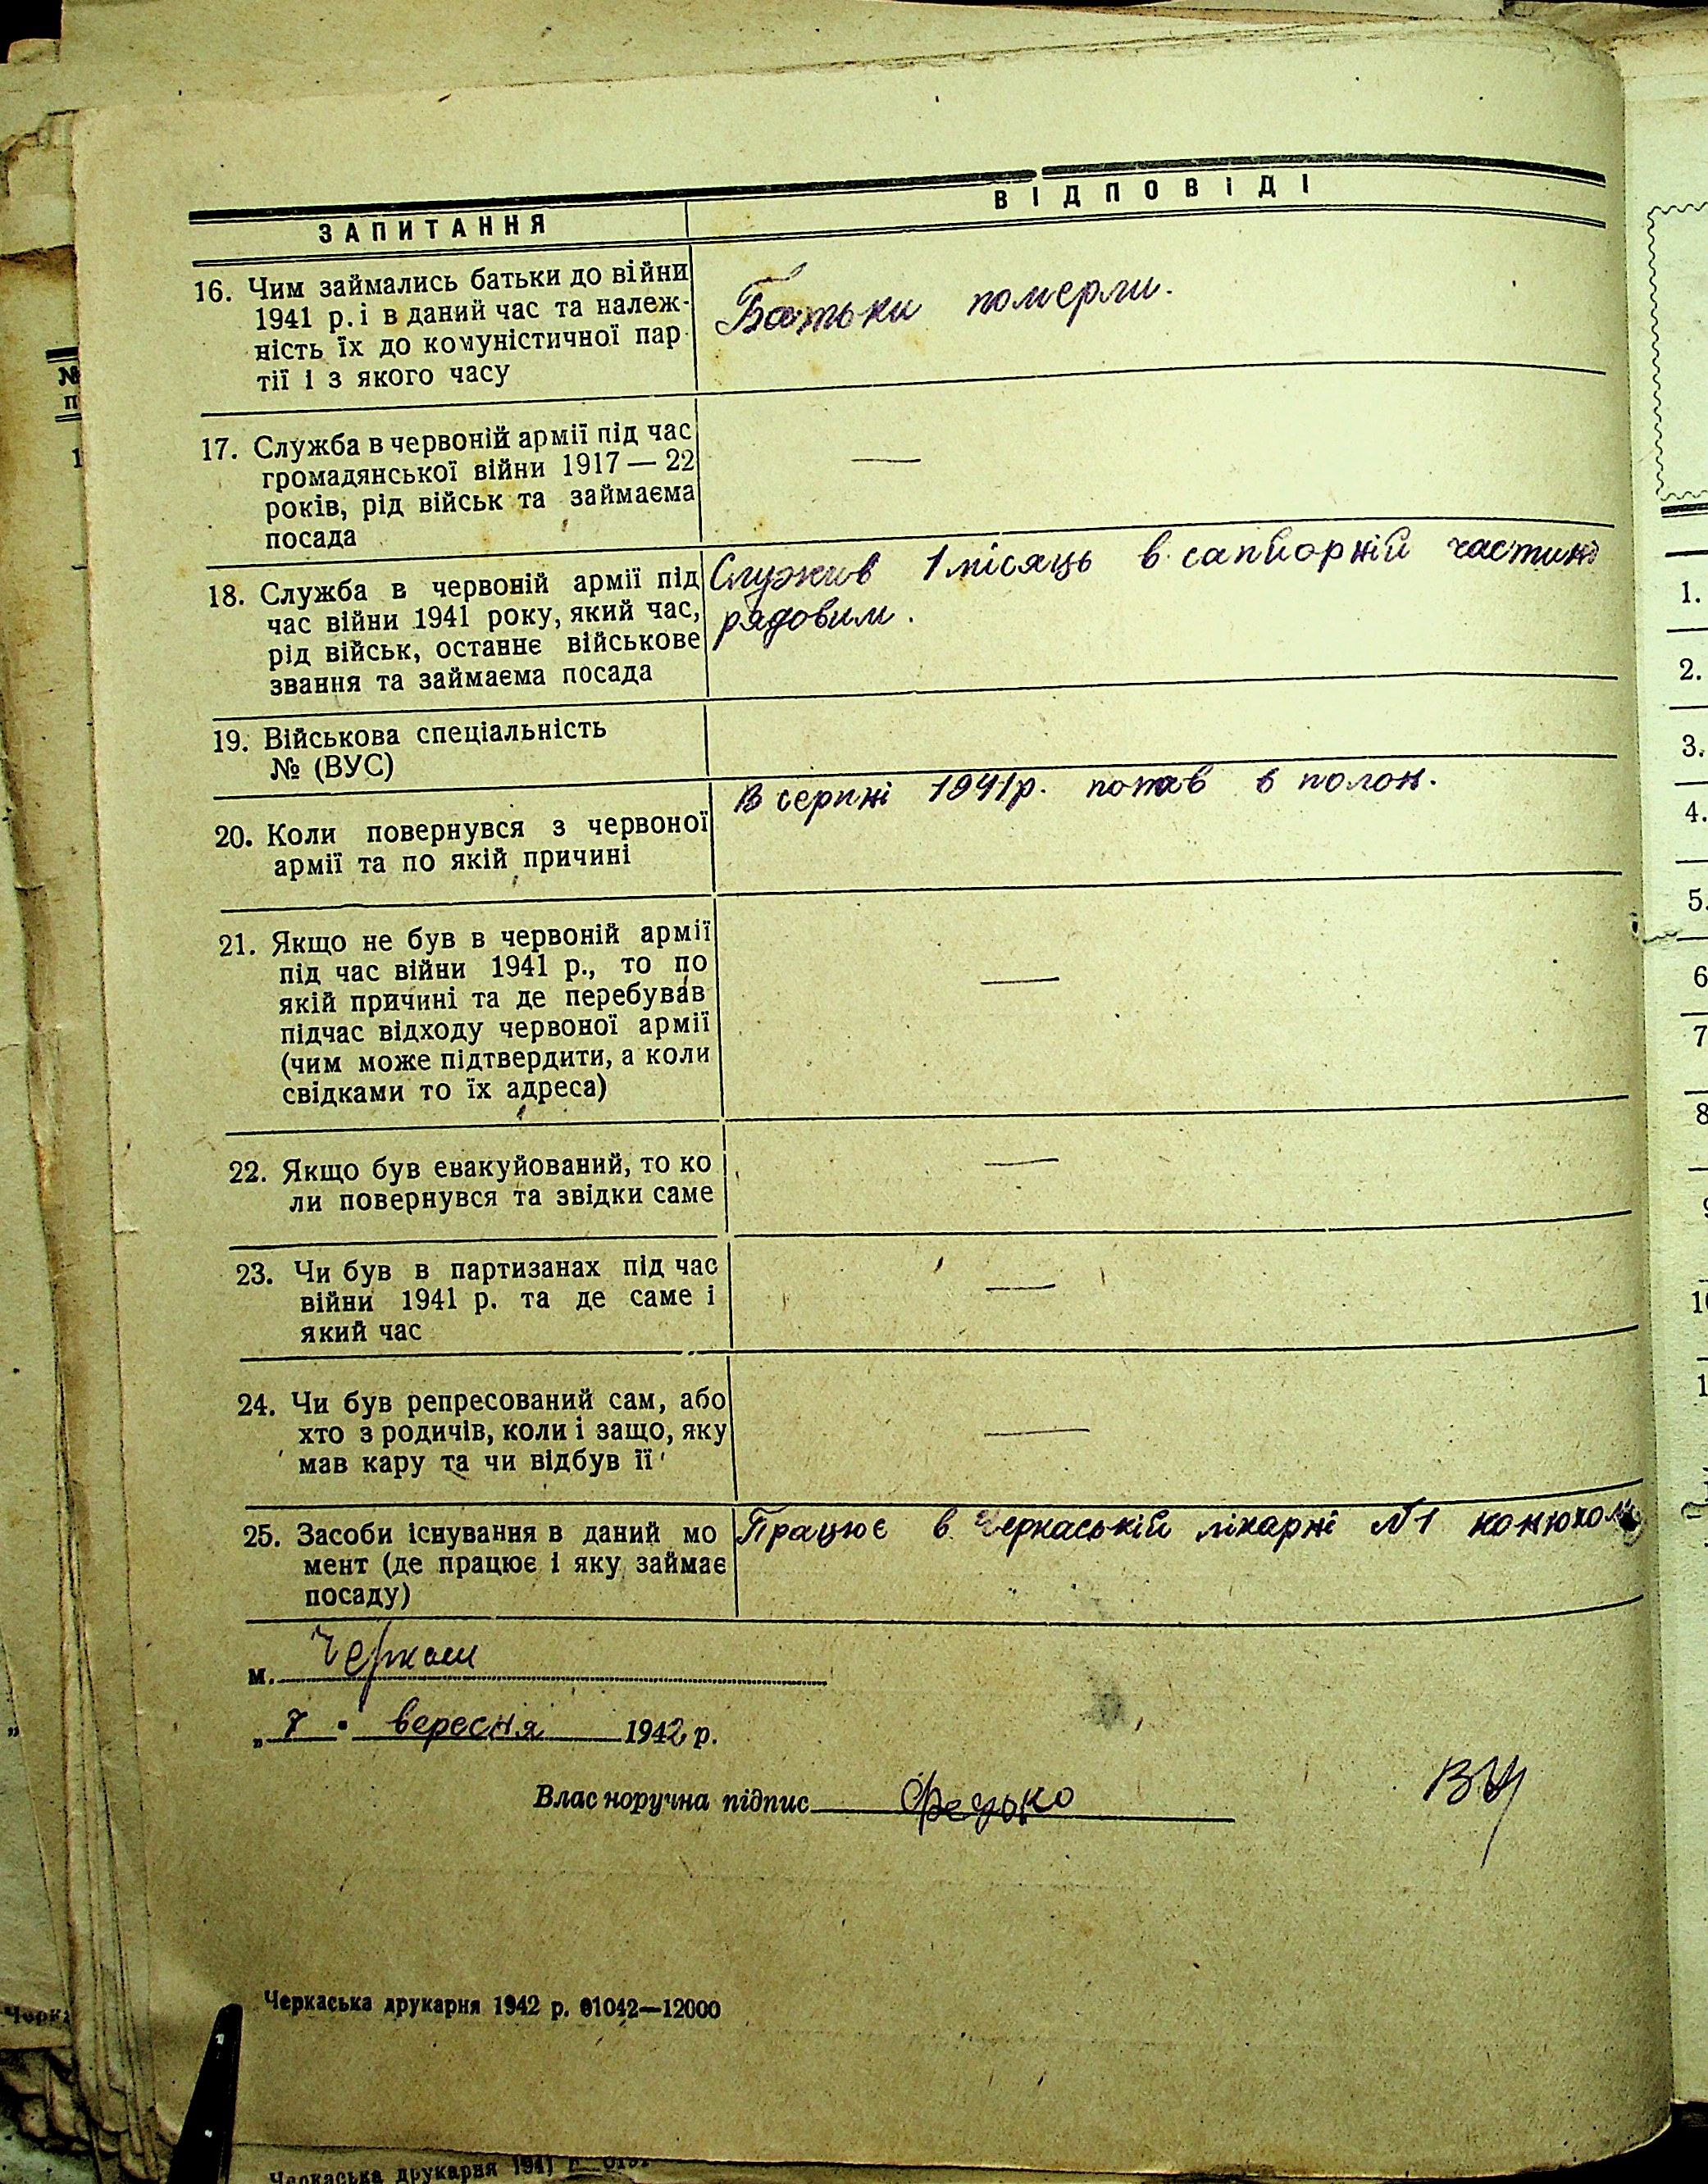 ЗАПИТАННЯ
ВІДПОВІДІ
16. Чим займались батьки до війни
1941 р. і в даний час та належ-
ність їх до комуністичної пар-
тії і з якого часу
Батьки померли.
17. Служба в червоній армії під час
громадянської війни 1917 — 22
років, рід військ та займаєма
посада
—
18. Служба в червоній армії під
час війни 1941 року, який час,
рід військ, останнє військове
звання та займаєма посада
Служив 1 місяць в сапйорній частині
рядовим.
19. Військова спеціальність
№ (ВУС)
20. Коли повернувся з червоної
армії та по якій причині
В серпні 1941 р. попав в полон.
21. Якщо не був в червоній армії
під час війни 1941 р., то по
якій причині та де перебував
підчас відходу червоної армії
(чим може підтвердити, а коли
свідками то їх адреса)
—
22. Якщо був евакуйований, то ко
ли повернувся та звідки саме
—
23. Чи був в партизанах під час
війни 1941 р. та де саме і
який час
—
24. Чи був репресований сам, або
хто з родичів, коли і защо, яку
мав кару та чи відбув її
—
25. Засоби існування в даний мо
мент (де працює і яку займає
посаду)
Працює в Черкаській лікарні №1 конюхом
м. Черкаси
„ 7 " вересня 1942 р.
Власноручна підпис Федько
Черкаська друкарня 1942 р. 01042—12000
Черкаська друкарня 1941
№
п
1
1.
2.
3.
4.
5.
6
7
8